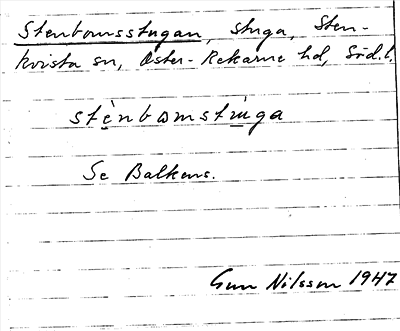 Stenbomsstugan, stuga, Sten-
kvista sn, Öster-Rekarne hd, Söd.l.
stènbωmstùga
Se Balkens.
Gun Nilsson 1947